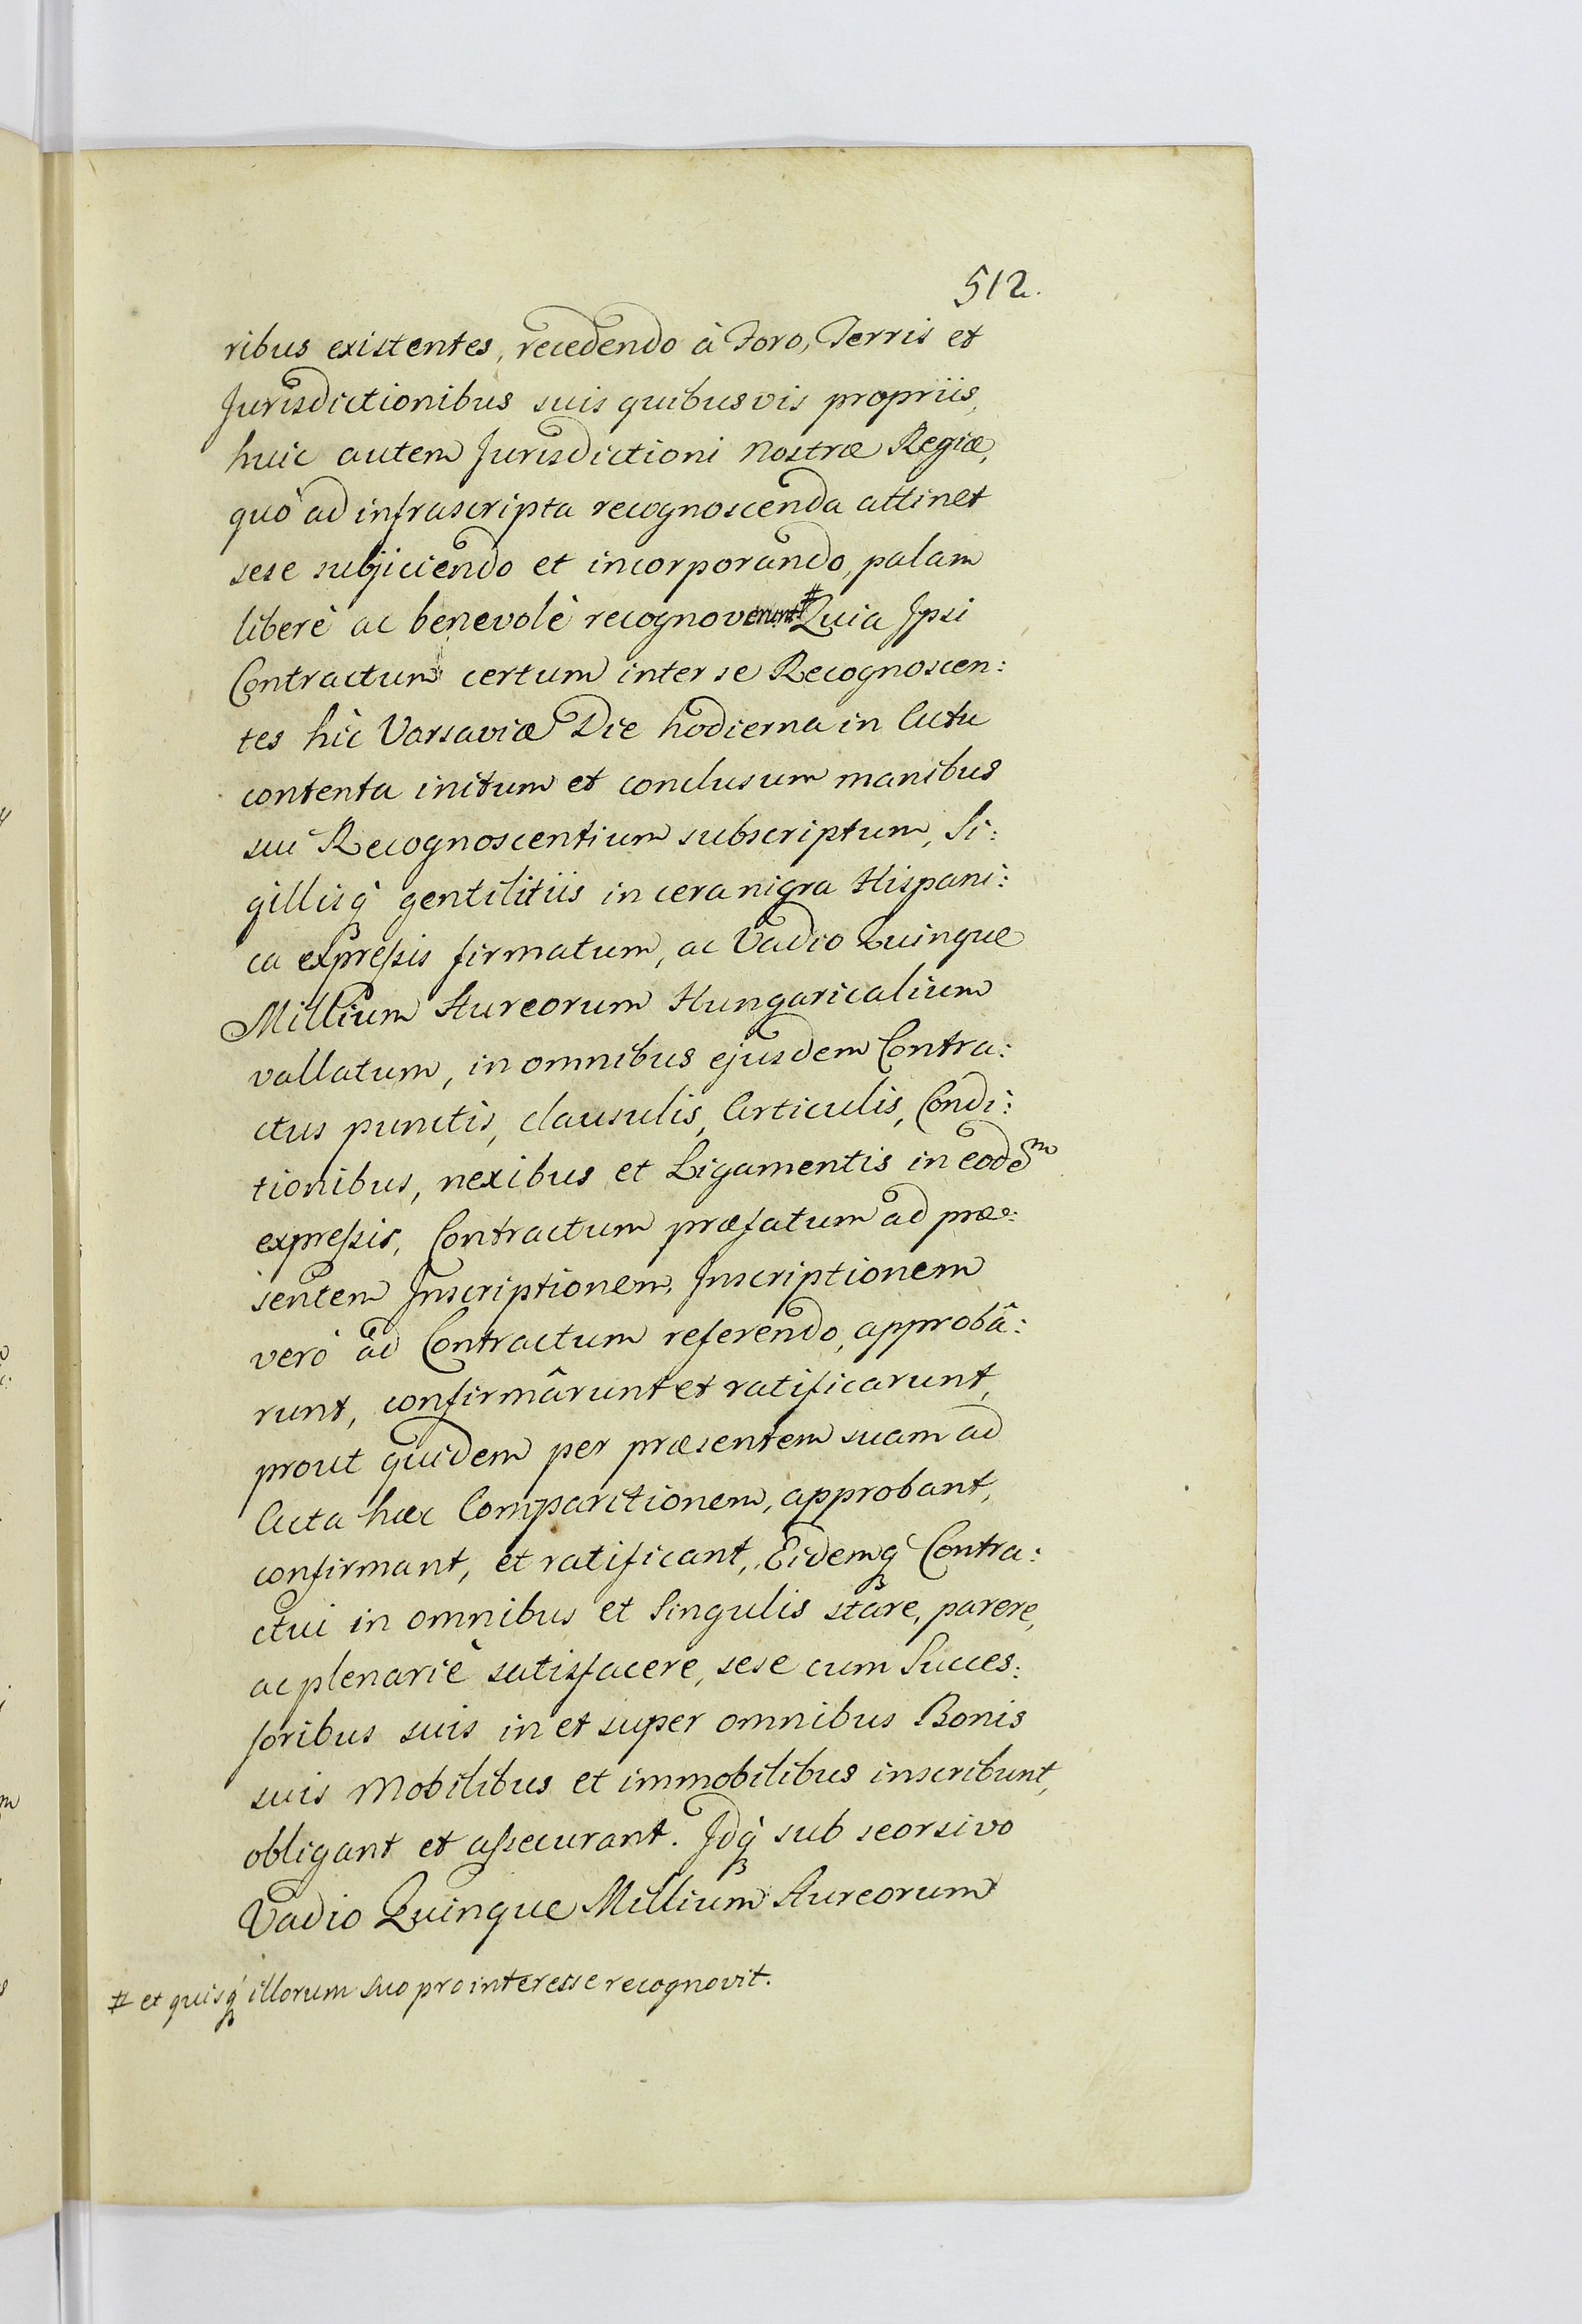 512.
ribus existentes, recedendo à Foro, Terris et
Jurisdictionibus suis quibusvis propriis,
huic autem Jurisdictioni Nostræ Regiæ,
quò ad infrascripta recognoscenda attinet
sese subjiciendo et incorporando, palam
liberè ac benevolè recognoverunt # Quia Ipsi
Contractum certum inter se Recognoscen:
tes hìc Varsaviæ Die hodierna in Actu
contenta initum et conclusum manibus
sui Recognoscentium subscriptum, Si:
gillisq́ gentilitiis in cera nigra Hispani:
ca expressis firmatum, ac Vadio Quinque
Millium Aureorum Hungaricalium
vallatum, in omnibus ejusdem Contra:
ctus punctis, clausulis, Articulis, Condi:
tionibus, nexibus et Ligamentis in eodeᵐ
expressis, Contractum præfatum ad præ:
sentem Inscriptionem, Inscriptionem
verò ad Contractum referendo, approbâ:
runt, confirmârunt et ratificarunt,
prout quidem per præsentem suam ad
Acta hæc Comparitionem, approbant,
confirmant, et ratificant, Eidemq́ Contra:
ctui in omnibus et Singulis stare, parere,
ac plenariè satisfacere, sese cum Succes:
soribus suis in et super omnibus Bonis
suis Mobilibus et immobilibus inscribunt,
obligant et assecurant. Idq́ sub seorsivo
Vadio Quinque Millium Aureorum
# et quisq́ illorum suo pro interesse recognovit.